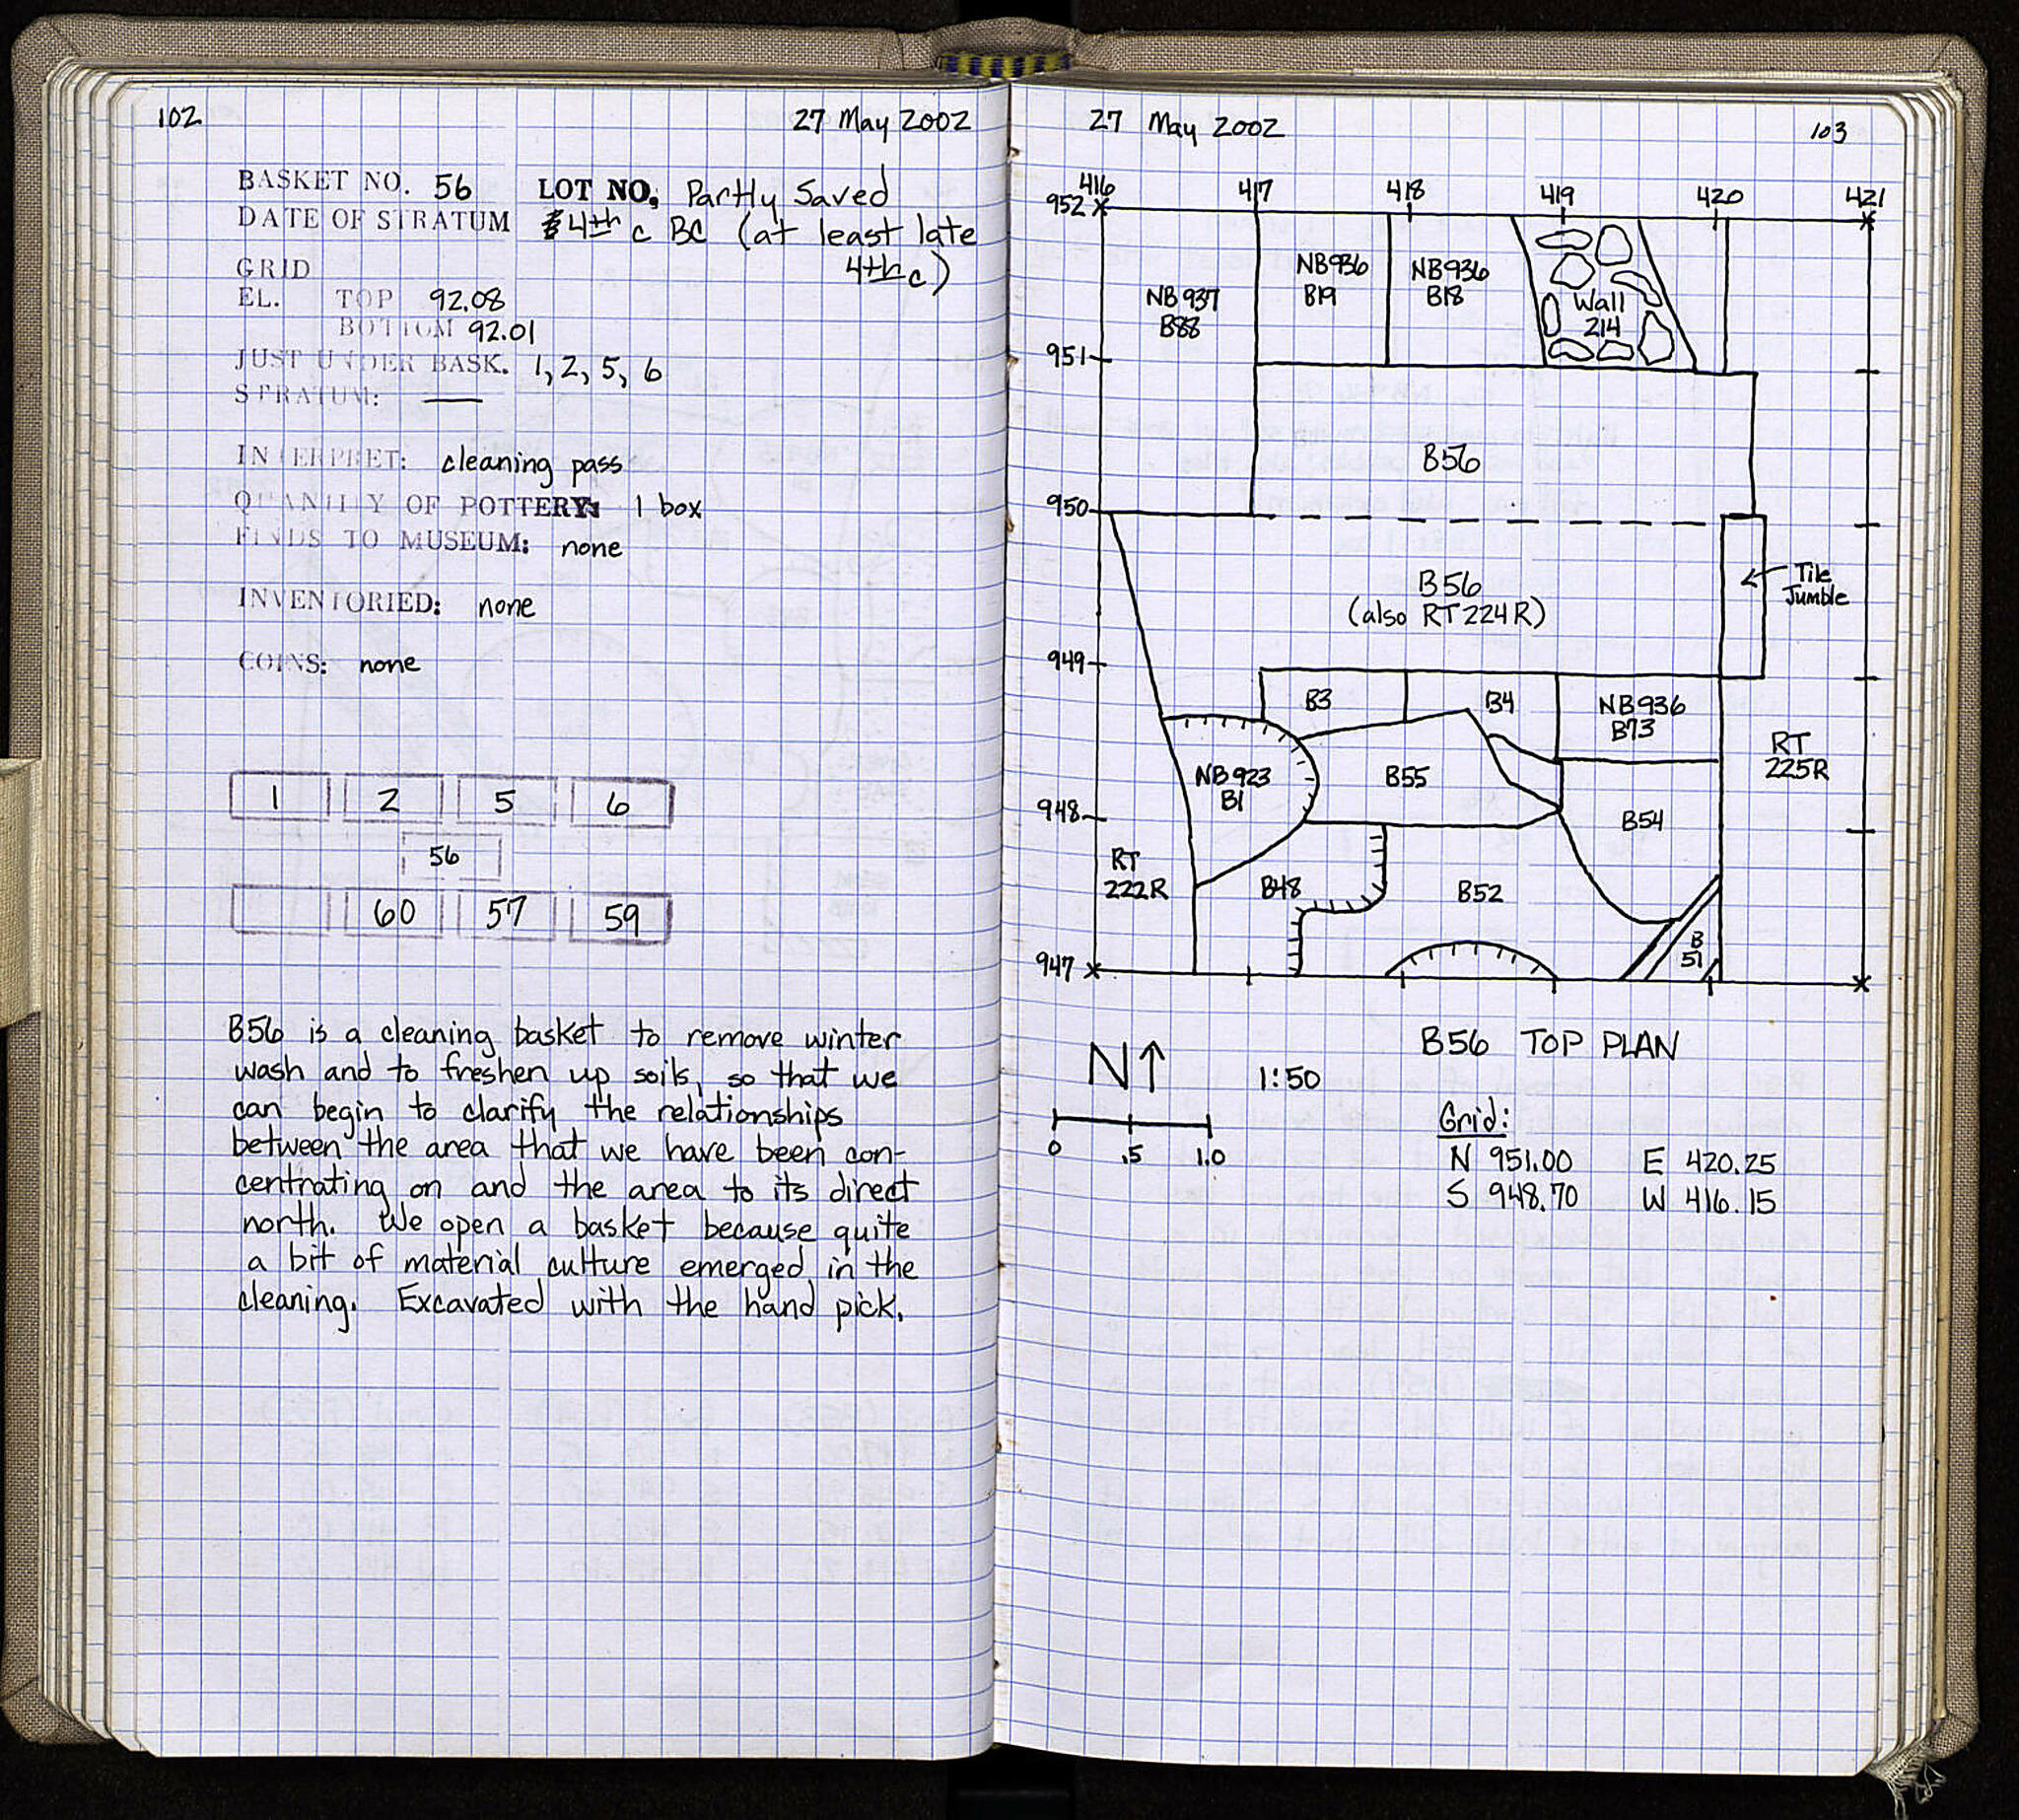 102
27 May 2002
BASKET NO. 56 LOT NO. Partly Saved
DATE OF STRATUM 4th c BC (at least late
4th c)
GRID
EL. TOP 92.08
BOTTOM 92.01
JUST UNDER BASK. 1, 2, 5, 6
STRATUM: —
INTERPRET: cleaning pass
QUANTITY OF POTTERY: 1 box
FINDS TO MUSEUM: none
INVENTORIED: none
COINS: none
1 2 5 6
56
60 57 59
B56 is a cleaning basket to remove winter
wash and to freshen up soils, so that we
can begin to clarify the relationships
between the area that we have been con-
centrating on and the area to its direct
north. We open a basket because quite
a bit of material culture emerged in the
cleaning. Excavated with the hand pick.
27 May 2002
103
416 417 418 419 420 421
952
NB937
B88
NB936
B19
NB936
B18
Wall
214
951
B56
950
B56
(also RT224R)
Tile
Jumble
949
B3
B4
NB936
B73
RT
225R
NB923
B1
B55
948
B54
RT
222R
B48
B52
B
51
947
B56 TOP PLAN
N↑
1:50
0 .5 1.0
Grid:
N 951.00 E 420.25
S 948.70 W 416.15